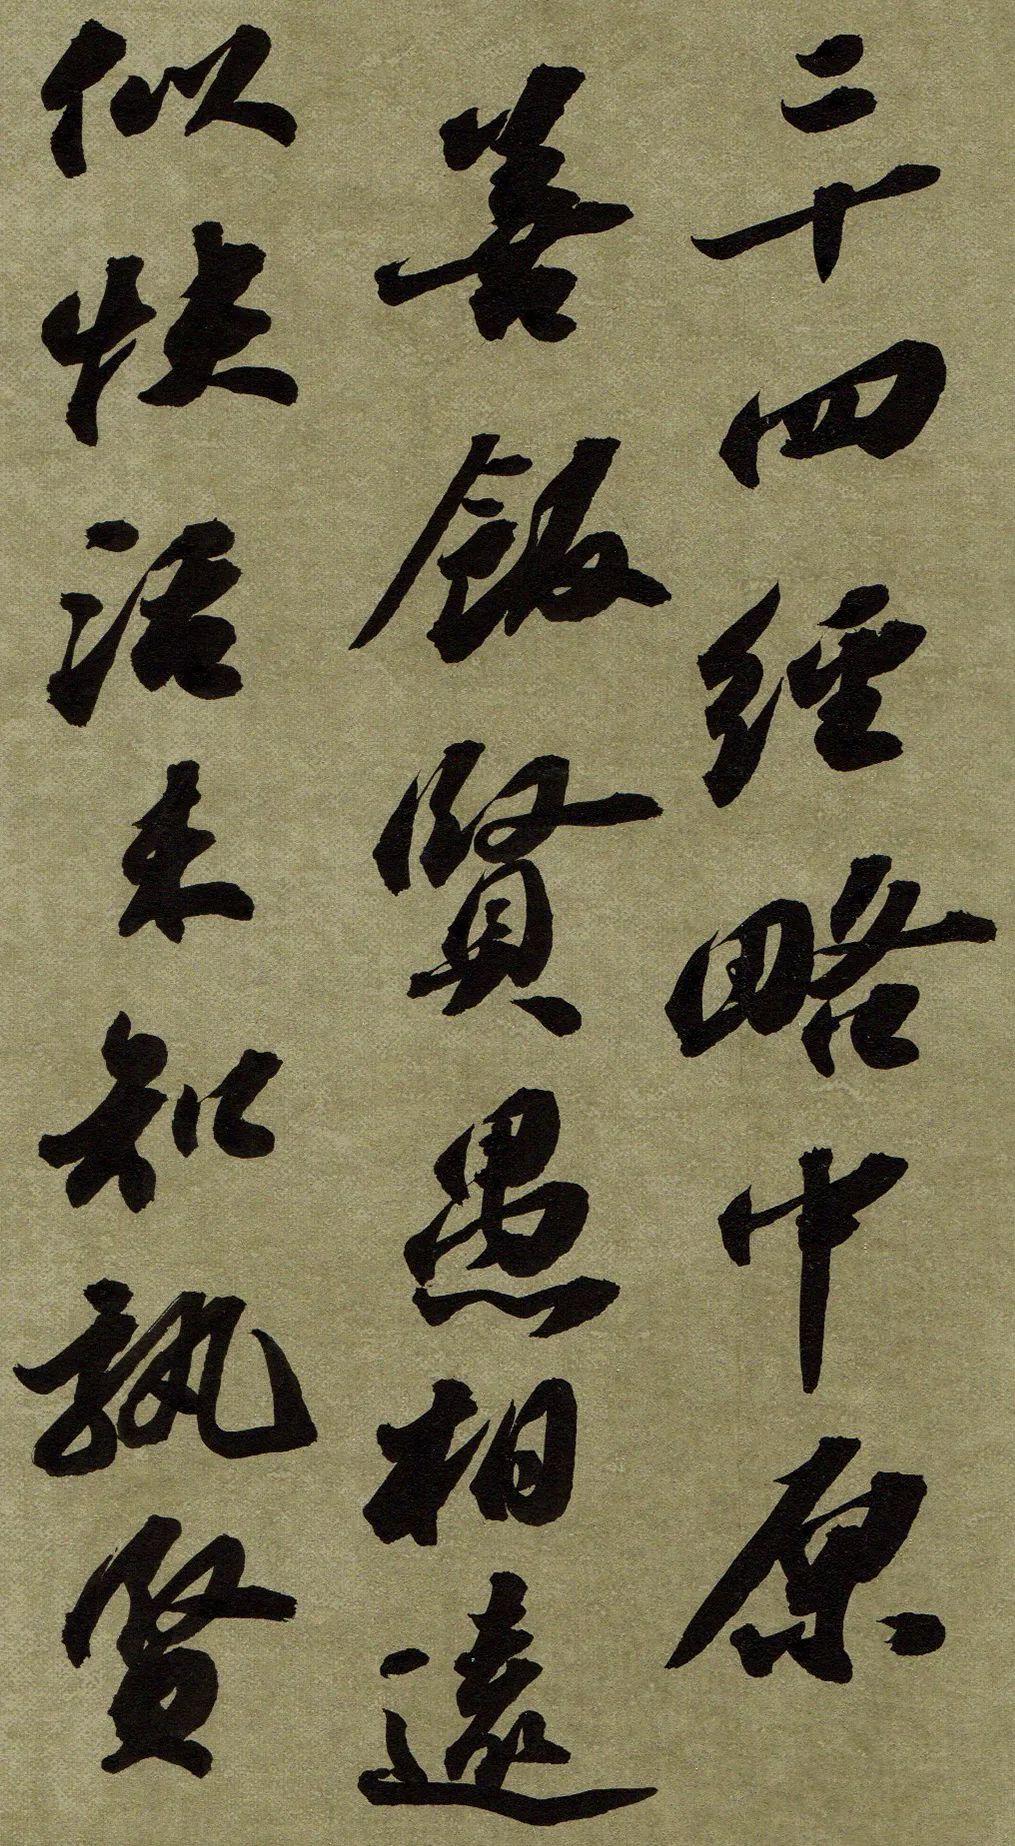 二十四經略中原
善飯賢愚相遠
似快活未知孰賢